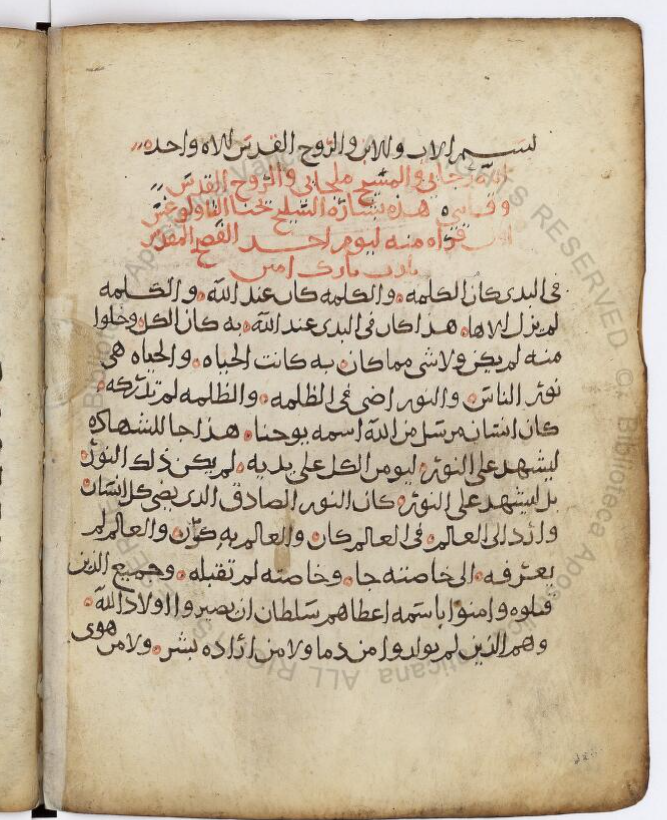 بسم الاب والابن والروح القدس الاه واحد
الله رجاي والمسيح ملجاي والروح القدس
هذه بشاره السليح يحنا
قراه منه ليوم احد الفصح المقدس
يارب بارك امين
في البدى كان الكلمه والكلمه كان عند الله والكلمه
لم يزل الاها هدا كان في البدى عند الله به كان الكل وخلوا
منه لم يكن ولا شي مما كان به كانت الحياه والحياه هي
نور الناس والنور اضى في الظلمه والظلمه لم تدركه
كان انسان مرسل من الله اسمه يوحنا هذا جا للشهاده
ليشهد على النور ليومن الكل على يديه لم يكن ذلك النور
بل ليشهد على النور كان النور الصادق الدى يضى كل انسان
وارد الى العالم في العالم كان والعالم به كون والعالم لم
يعرفه الى خاصته جا وخاصته لم تقبله وجميع الدين
قبلوه وامنوا باسمه اعطاهم سلطان ان يصيروا اولاد الله
وهم الذين لم يولدوا من دما ولا من اراده بشر ولا من هوى